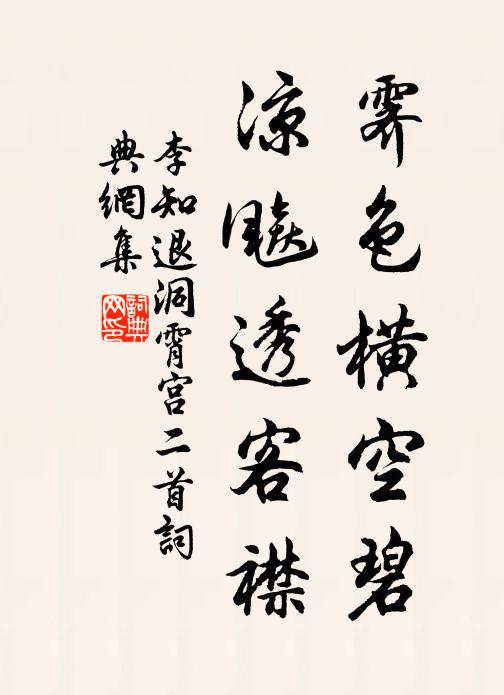 霽色橫空碧
涼飈透客襟
李知退洞霄宮二首詞
典網集
詞典網印